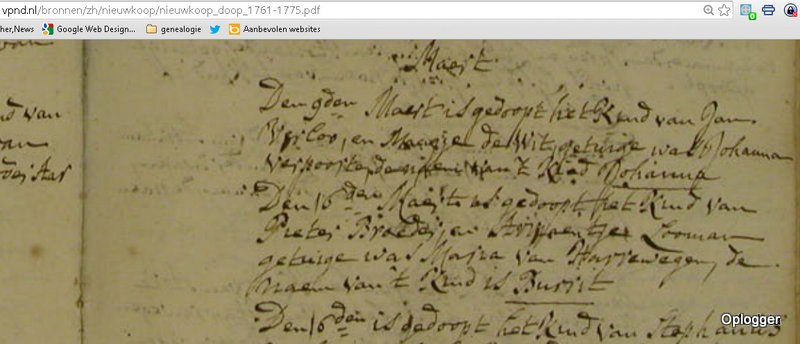 vpnd.nl/bronnen/zh/nieuwkoop/nieuwkoop_doop_1761-1775.pdf
her,News Google Web Design... genealogie Aanbevolen websites
Maert
Den 9den Maert is gedoopt het Kind van Jan
Verloo, en Maagje de Wit, getuige was Johanna
Verpoorte, de naem van 't Kind Johanna
Den 16den Maert is gedoopt het Kind van
Pieter en Looman
getuige was Maria van Harrewegen, de
naem van 't Kind is Burrit
Den 16den is gedoopt het Kind van Stephanus
nd van
van
Oplogger